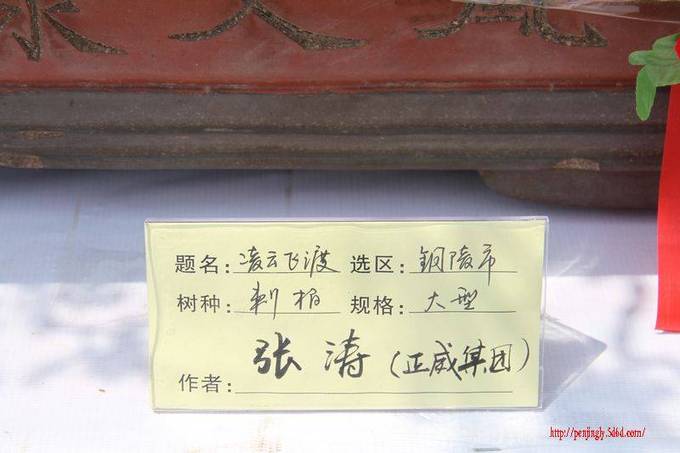 题名：凌云飞渡 选区：铜陵市
树种：刺柏 规格：大型
作者：张涛（正威集团）
http://penjingly.5d6d.com/